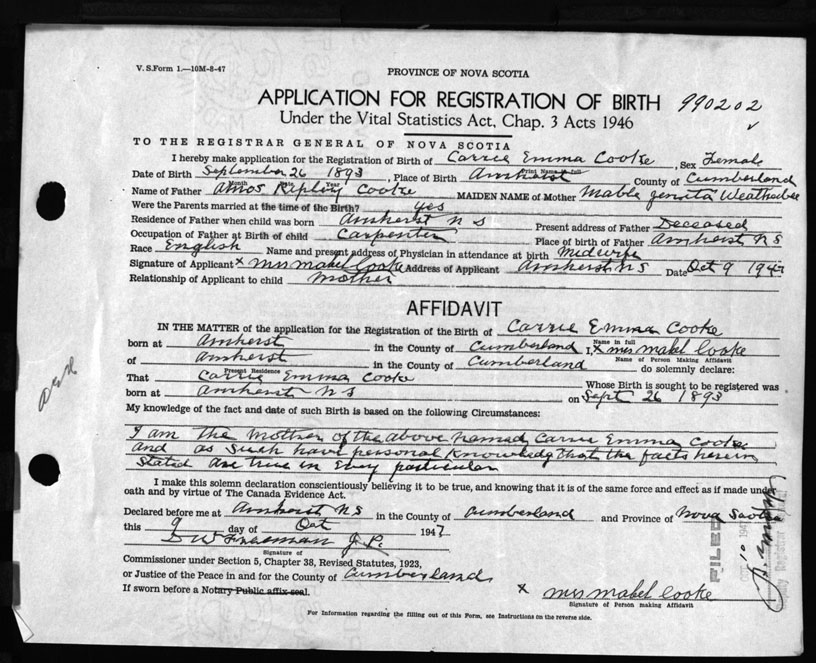 V. S.Form 1.—10M-8-47
PROVINCE OF NOVA SCOTIA
APPLICATION FOR REGISTRATION OF BIRTH 990202
Under the Vital Statistics Act, Chap. 3 Acts 1946
TO THE REGISTRAR GENERAL OF NOVA SCOTIA
I hereby make application for the Registration of Birth of Carrie Emma Cooke, Sex Female
Print Name in full
Date of Birth September 26 1893, Place of Birth Amherst County of Cumberland
Month Date Year
Name of Father Amos Ripley Cooke MAIDEN NAME of Mother Mable Weatherbee
Were the Parents married at the time of the Birth? yes
Residence of Father when child was born Amherst N S Present address of Father Deceased
Occupation of Father at Birth of child Carpenter Place of birth of Father Amherst N S
Race English Name and present address of Physician in attendance at birth Midwife
Signature of Applicant x Mrs Mabel Cooke Address of Applicant Amherst N S Date Oct 9 1947
Relationship of Applicant to child Mother
AFFIDAVIT
IN THE MATTER of the application for the Registration of the Birth of Carrie Emma Cooke
Name in full
born at Amherst in the County of Cumberland I, x Mrs Mabel Cooke
Name of Person Making Affidavit
of Amherst in the County of Cumberland do solemnly declare:
Present Residence
That Carrie Emma Cooke Whose Birth is sought to be registered was
born at Amherst N S on Sept 26 1893
My knowledge of the fact and date of such Birth is based on the following Circumstances:
I am the Mother of the above named Carrie Emma Cooke
and as such have personal knowledg that the facts herein
stated are true in Every particular
I make this solemn declaration conscientiously believing it to be true, and knowing that it is of the same force and effect as if made under
oath and by virtue of The Canada Evidence Act.
Declared before me at Amherst N S in the County of Cumberland and Province of Nova Scotia
this 9 day of Oct 1947
Freeman J. P.
Signature of
Commissioner under Section 5, Chapter 38, Revised Statutes, 1923,
or Justice of the Peace in and for the County of Cumberland
If sworn before a Notary Public affix seal.
x Mrs Mabel Cooke
Signature of Person making Affidavit
For Information regarding the filling out of this Form, see Instructions on the reverse side.
FILED